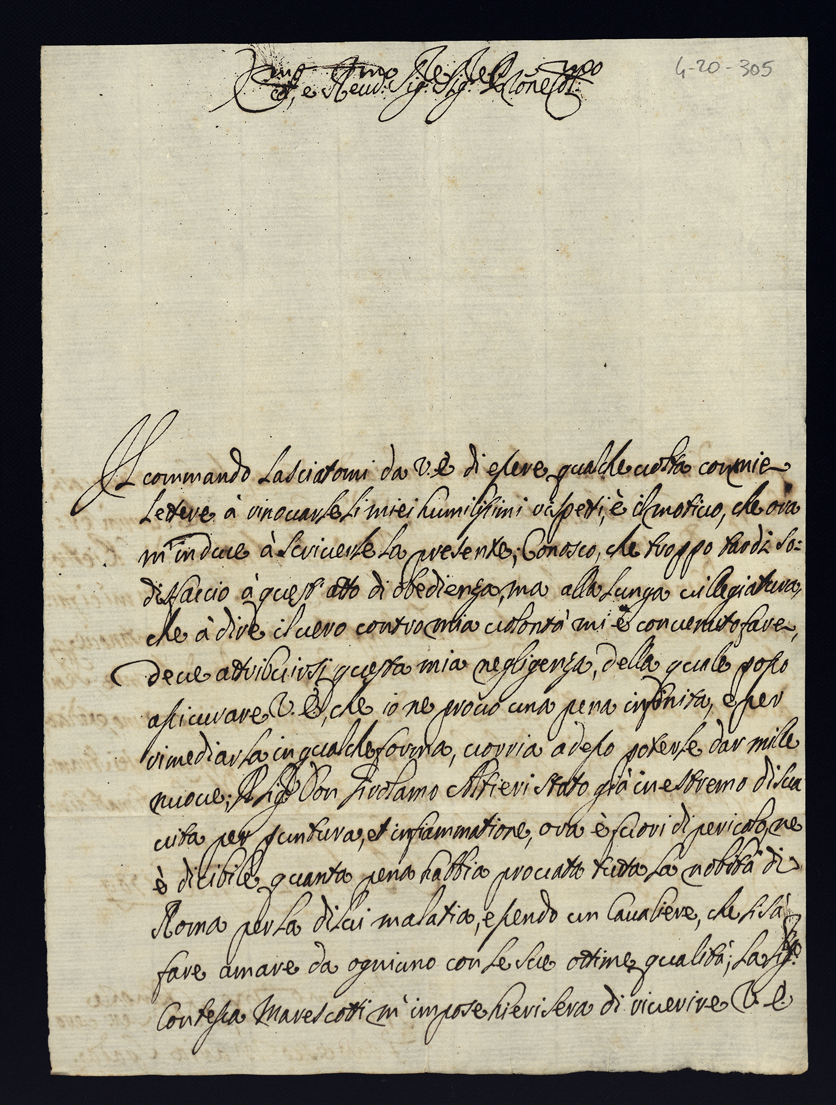 4-20-305
Ecc.mo e Reud.mo Sig.re Sig.re Pron̄e Col.mo
Il commando lasciatomi da V.E. di esere qualche uolta con mie
lettere à rinouarle li miei humilissimi rispetti, è il motiuo, che ora
m'induce à scriuerle la presente; Conosco, che troppo tardi so=
disfaccio à quest'atto di obedienza, ma alla lunga uillegiatura,
che à dire il uero contro mia uolontà mi è conuenuto fare,
deue attribuirsi questa mia negligenza, della quale poso
asicurare V.E., che io ne prouo una pena infinita, e per
rimediarla in qualche forma, uorria adeso poterle dar mille
nuoue; Il Sig.r Don Girolamo Altieri stato già in estremo di sua
uita per puntura, et infiammatione, ora è fuori di pericolo, ne
è dicibile quanta pena habbia prouata tutta la nobiltà di
Roma per la di lui malatia, esendo un Caualiere, che si sà
fare amare da ogniuno con le sue ottime qualità; la Sig.ra
Contesa Marescotti m'impose hierisera di riuerire V.E.